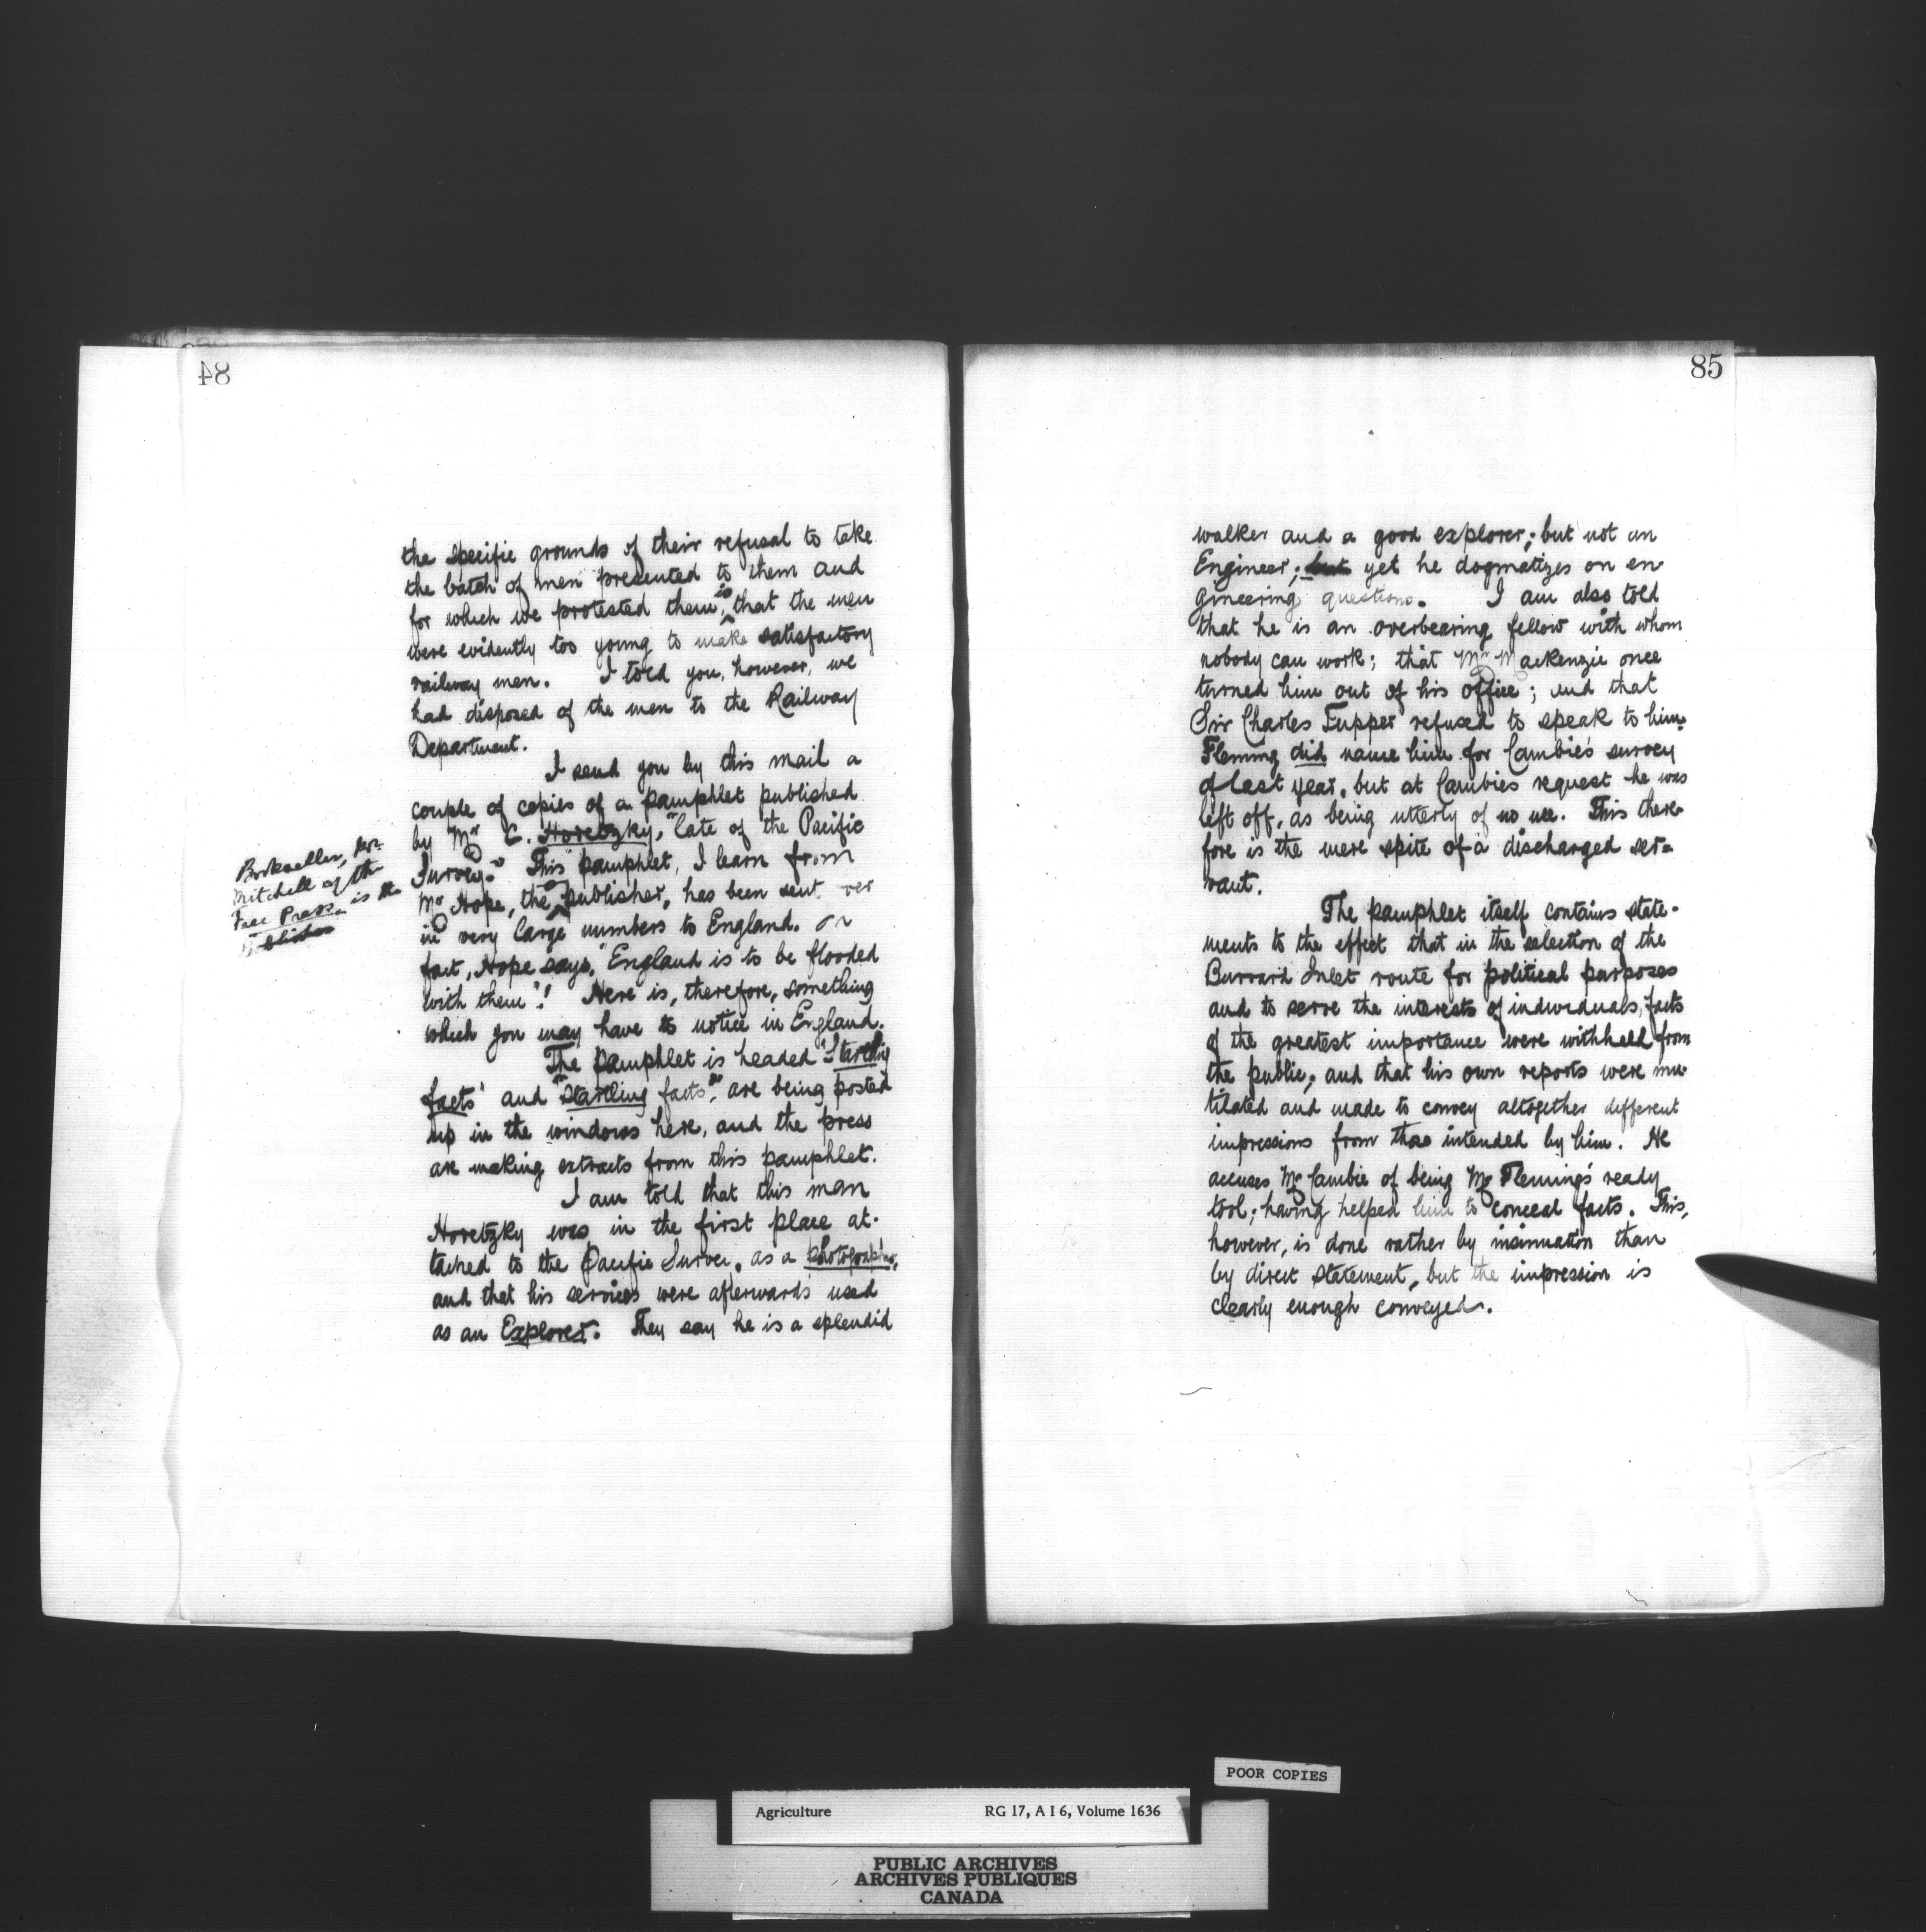 84
the specific grounds of their refusal to take
the batch of men presented to them and
for which we protested them, is that the men
were evidently too young to make satisfactory
railway men. I told you, however, we
had disposed of the men to the Railway
Department.
I send you by this mail a
couple of copies of a pamphlet published
by Mr C. Horetzky, "late of the Pacific
Survey." This pamphlet, I learn from
Mr Hope, the publisher, has been sent over
in very large numbers to England. In
fact, Hope says, "England is to be flooded
with them"! Here is, therefore, something
which you may have to notice in England.
The pamphlet is headed "Startling
facts" and "startling facts", are being posted
up in the windows here, and the press
are making extracts from this pamphlet.
I am told that this man
Horetzky was in the first place at-
tached to the Pacific Survey, as a photographer,
and that his services were afterwards used
as an Explorer. They say he is a splendid
Bookseller, for
Mitchell of the
Free Press is the
Publisher
85
walker and a good explorer; but not an
Engineer; but yet he dogmatizes on en-
gineering questions. I am also told
that he is an overbearing fellow with whom
nobody can work; that Mr Mackenzie once
turned him out of his office; and that
Sir Charles Tupper refused to speak to him.
Fleming did name him for Cambie's survey
of last year, but at Cambies request he was
left off, as being utterly of no use. This there-
fore is the mere spite of a discharged ser-
vant.
The pamphlet itself contains state-
ments to the effect that in the selection of the
Burrard Inlet route for political purposes
and to serve the interests of individuals, facts
of the greatest importance were withheld from
the public; and that his own reports were mu-
tilated and made to convey altogether different
impressions from those intended by him. He
accuses Mr Cambie of being Mr Fleming's ready
tool; having helped him to conceal facts. This,
however, is done rather by insinuation than
by direct statement, but the impression is
clearly enough conveyed.
POOR COPIES
Agriculture RG 17, A I 6, Volume 1636
PUBLIC ARCHIVES
ARCHIVES PUBLIQUES
CANADA